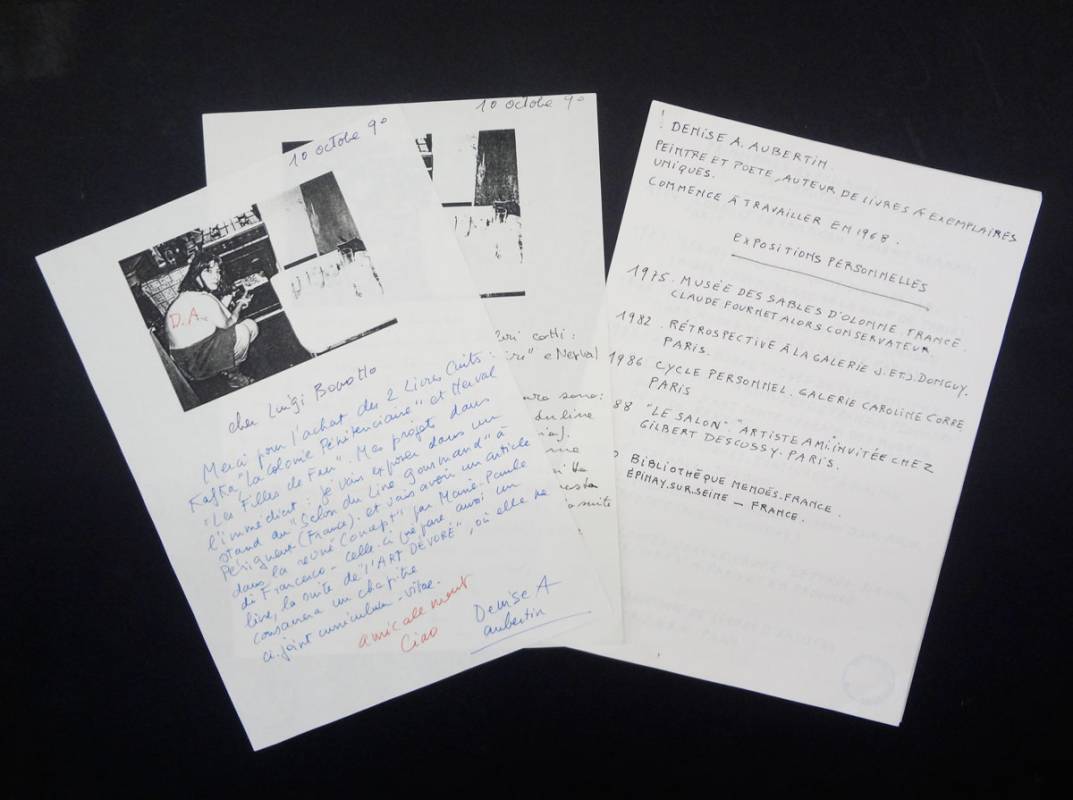 10 octobre 90
D.A.
cher Luigi Bonotto
Merci pour l'achat des 2 Livres Cuits :
Kafka "La Colonie Pénitenciaire" et Nerval
"Les Filles de Feu". Mes projets dans
l'immédiat : je vais exposer dans un
stand du "Salon du Livre gourmand" à
Périgueux (France). et vais avoir un article
dans la revue "Concept" par Marie-Paule
di Francesco - celle-ci prépare aussi un
livre, la suite de "l'ART DÉVORÉ", où elle me
consacrera un chapitre
ci-joint curriculum-vitae.
amicalement
Ciao
Denise A
Aubertin
10 octobre 90
cotti :
e Nerval
sono :
suite
DENISE A. AUBERTIN
PEINTRE ET POETE, AUTEUR DE LIVRES À EXEMPLAIRES
UNIQUES.
COMMENCE À TRAVAILLER EN 1968.
EXPOSITIONS PERSONNELLES
1975. MUSÉE DES SABLES D'OLONNE. FRANCE
CLAUDE FOURNET ALORS CONSERVATEUR.
1982. RÉTROSPECTIVE À LA GALERIE J. ET J. DONGUY.
PARIS.
1986 CYCLE PERSONNEL. GALERIE CAROLINE CORRE
PARIS
88 "LE SALON" "ARTISTE AMI" INVITÉE CHEZ
GILBERT DESCOSSY. PARIS.
BIBLIOTHÈQUE MENDÈS.FRANCE.
ÉPINAY.SUR.SEINE — FRANCE.